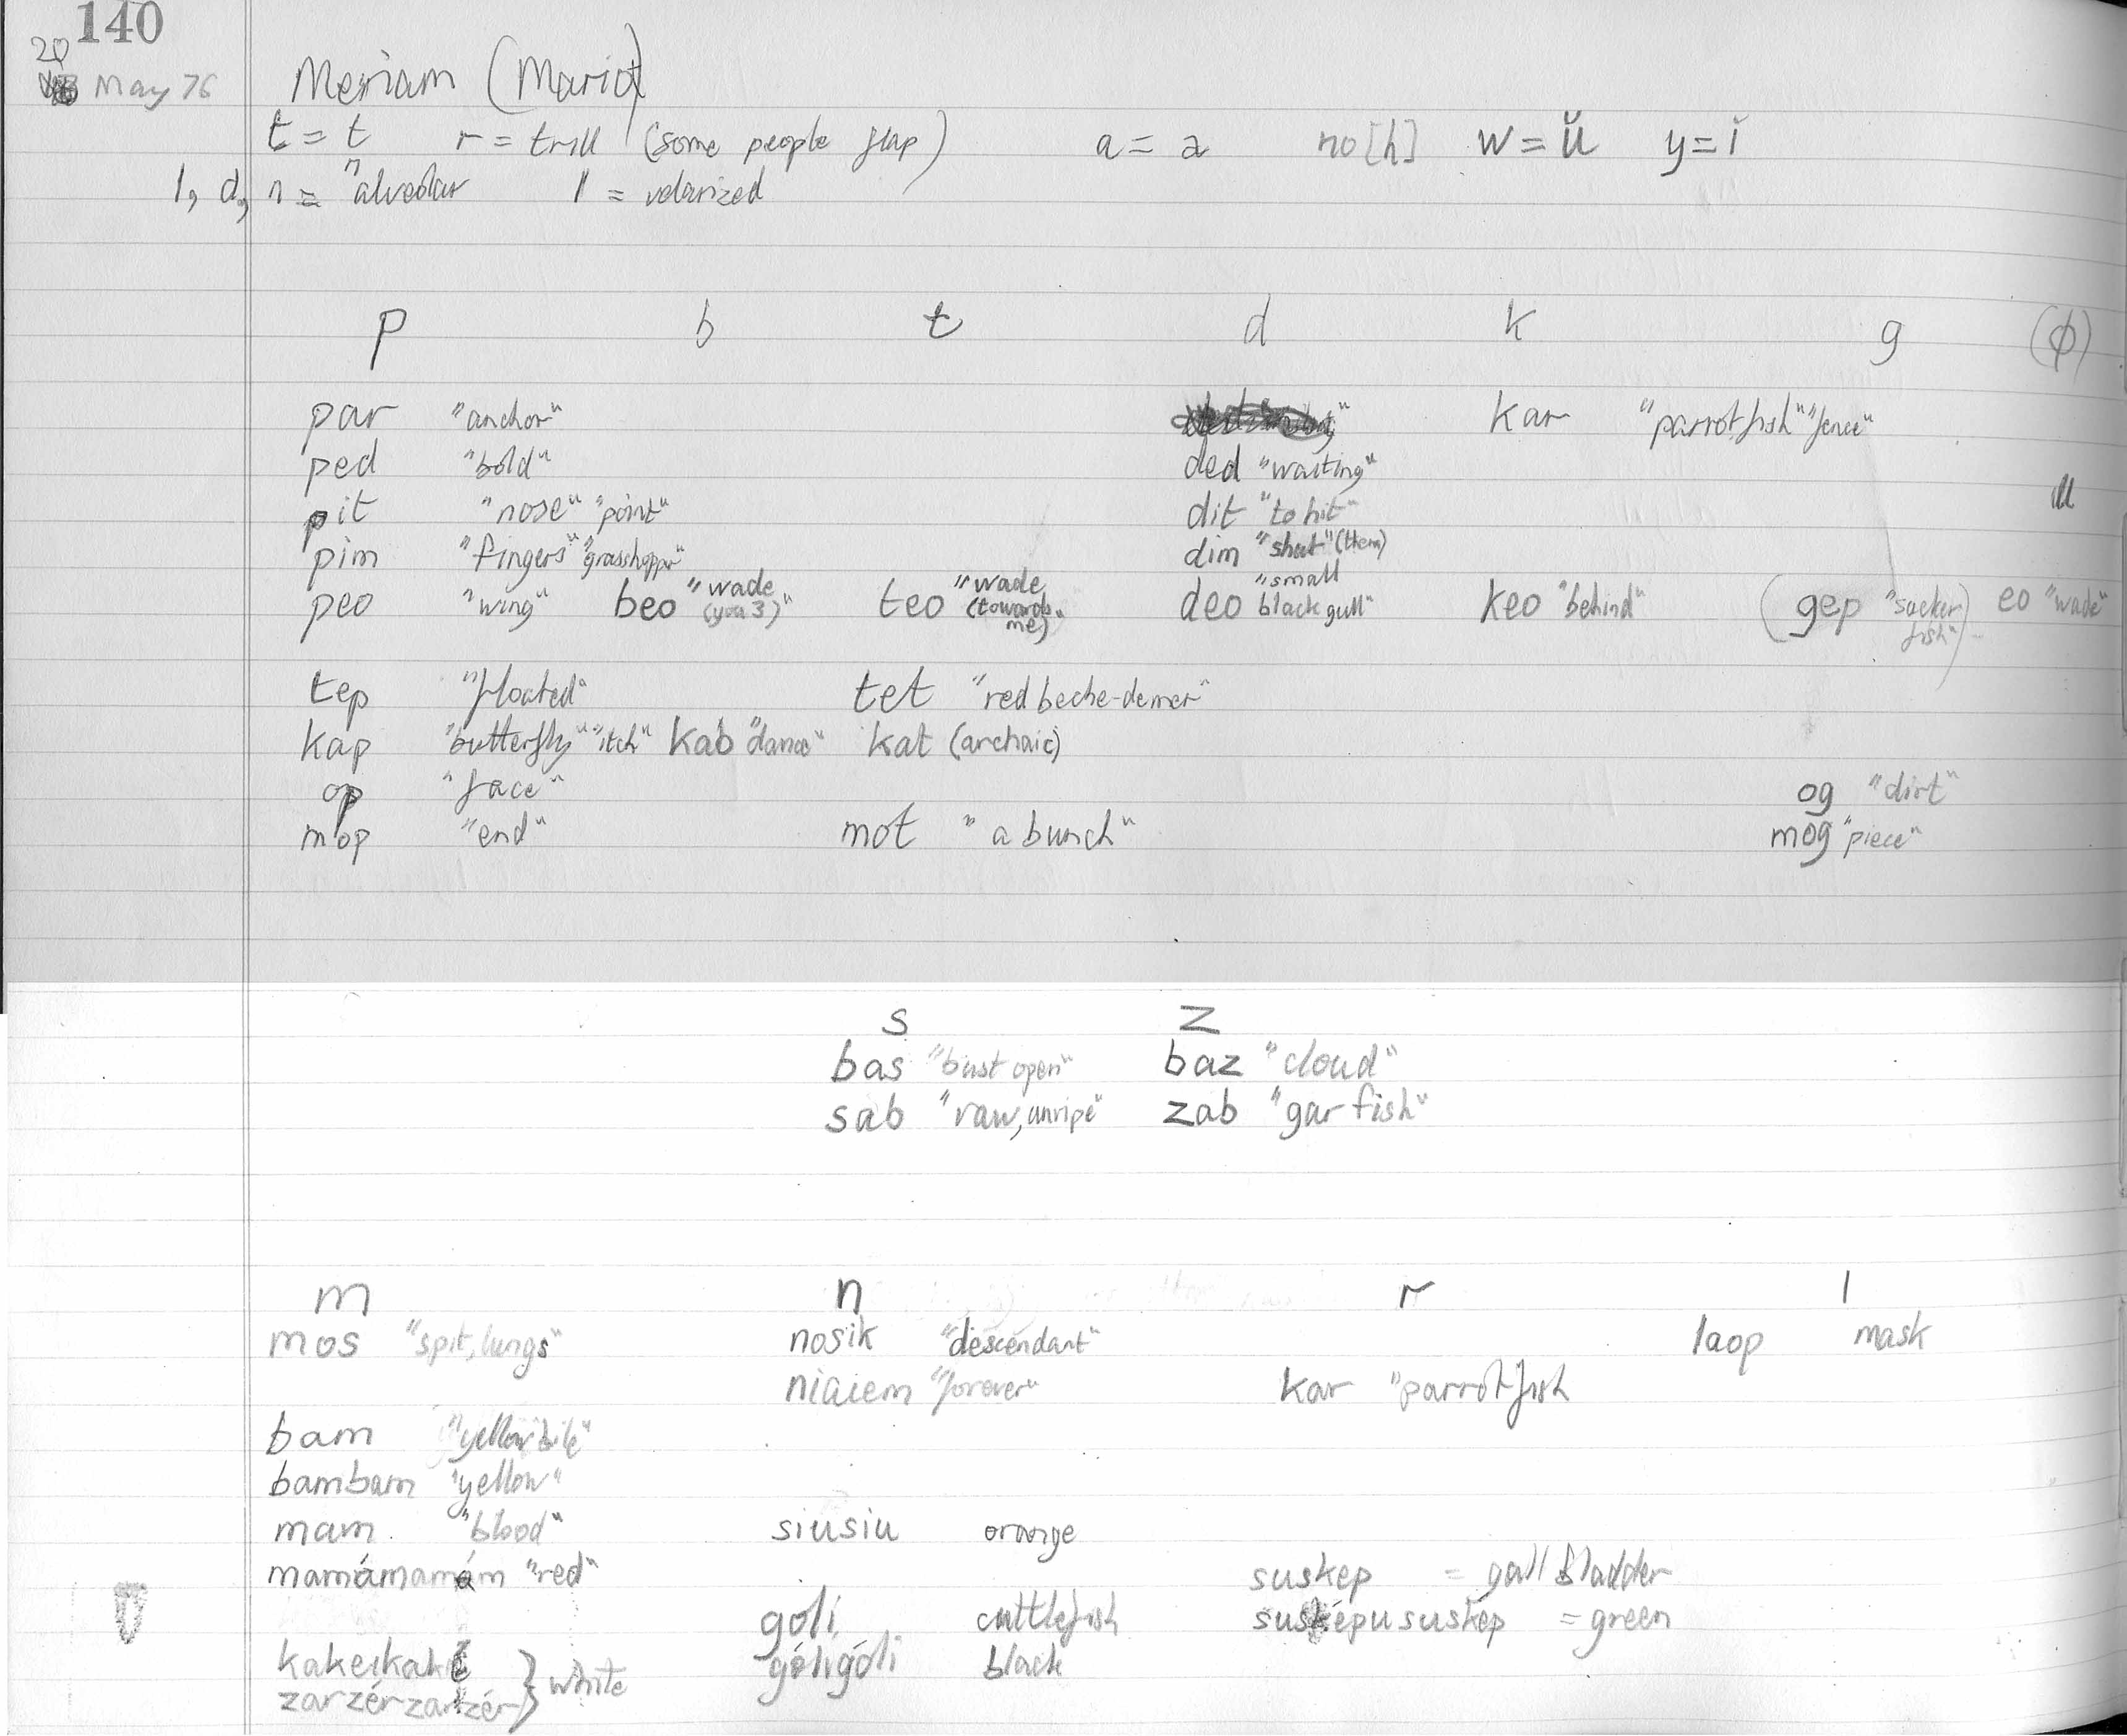 140
20 May 76
Meriam (Mario)
t = t r = trill (some people flap) a = a no [h] w = ŭ y = ĭ
l, d, n = "alveolar l = velarized
p b t d k g (ϕ)
par "anchor" kar "parrotfish" "fence"
ped "bold" ded "waiting"
pit "nose" "point" dit "to hit"
pim "fingers" "grasshopper" dim "shut" (them)
peo "wing" beo "wade (you 3)" teo "wade (towards me)" deo "small black gull" keo "behind" (gep "sucker fish") eo "wade"
tep "floated" tet "red beche-demer"
kap "butterfly" "itch" kab "dance" kat (archaic)
op "face" og "dirt"
mop "end" mot "a bunch" mog "piece"
s z
bas "bust open" baz "cloud"
sab "raw, unripe" zab "gar fish"
m n r l
mos "spit, lungs" nosik "descendant" laop mask
niaiem "forever" kar "parrotfish
bam "yellow bile"
bambam "yellow"
mam "blood" siusiu orange
mamámamám "red" suskep = gall bladder
goli cuttlefish susképu suskép = green
kakekake } white góligóli black
zarzérzarzér